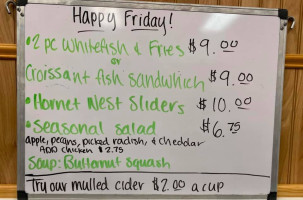 Happy Friday!
• 2 pc Whitefish & Fries $9.00
or
Croissant fish sandwhich $9.00
• Hornet Nest Sliders $10.00
• Seasonal salad $6.75
apple, pecans, picked radish, & cheddar
ADD chicken $2.75
Soup: Butternut Squash
Try our mulled cider $2.00 a cup